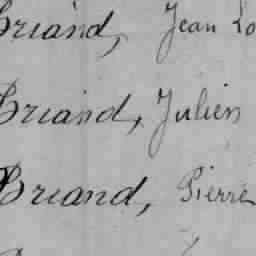 Briand, Jean Lo
Briand, Julien
Briand, Pierre